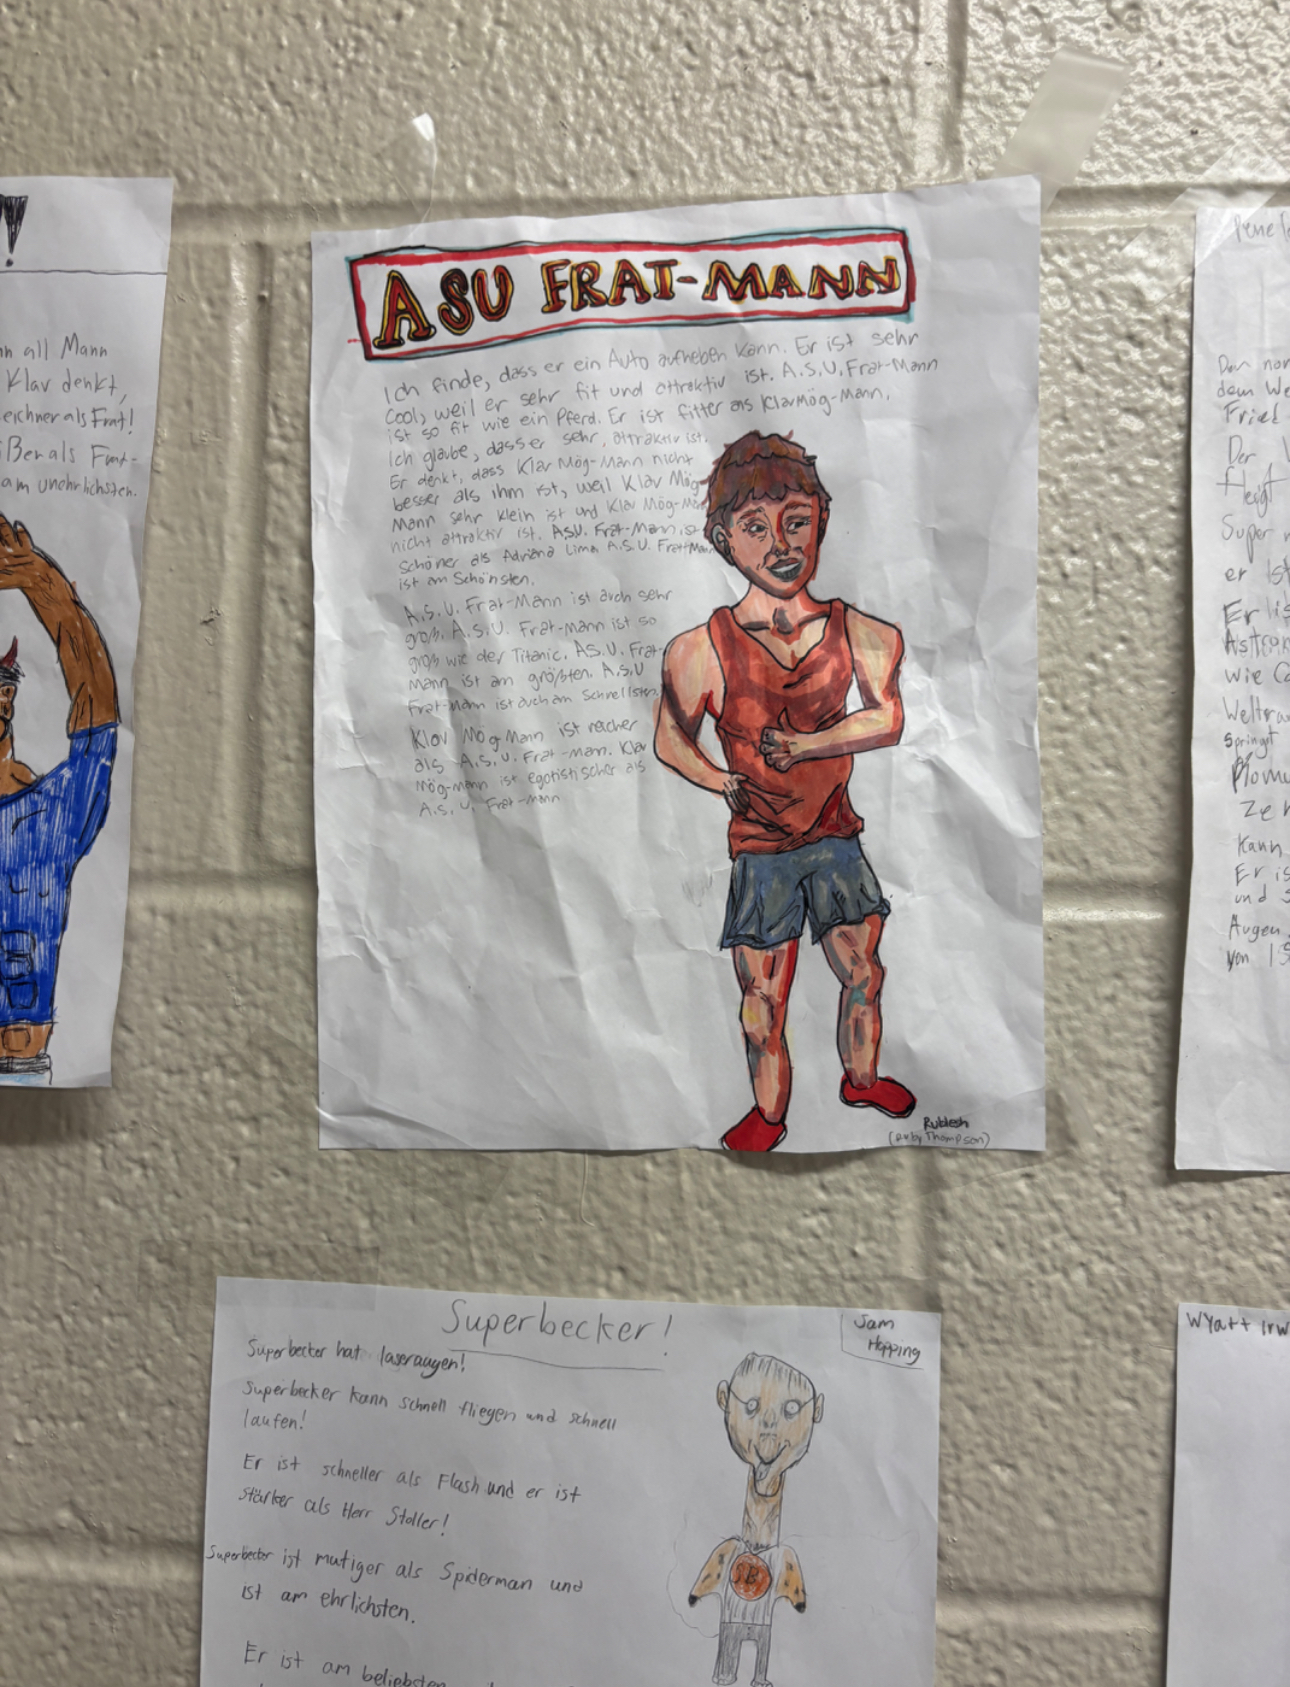 !
all Mann
Klav denkt,
als Frat!
als Frat-
am unehrlichsten.
ASU FRAT-MANN
Ich finde, dass er ein Auto aufheben kann. Er ist sehr
cool, weil er sehr fit und attraktiv ist. A.S.U. Frat-Mann
ist so fit wie ein Pferd. Er ist fitter als Klavmög-Mann.
Ich glaube, dass er sehr attraktiv ist.
Er denkt, dass Klav Mög-Mann nicht
besser als ihm ist, weil Klav Mög
Mann sehr klein ist und Klav Mög-Mann
nicht attraktiv ist. A.S.U. Frat-Mann ist
Schöner als Adriana Lima A.S.U. Frat-Mann
ist am Schönsten.
A.S.U. Frat-Mann ist auch sehr
groß. A.S.U. Frat-mann ist so
groß wie der Titanic. A.S.U. Frat-
Mann ist am größten. A.S.U
Frat-Mann ist auch am Schnellsten.
Klav Mög Mann ist reicher
als A.S.U. Frat-mann. Klav
Mög-mann ist egotistischer als
A.S.U. Frat-mann
Rublesh
(Ruby Thompson)
dem We
Fried
Der
fleigt
Super
er ist
Er
wie
Weltra
springt
kann
Er is
und
Augen
von
Superbecker!
Sam
Hopping
Superbecker hat laseraugen!
Superbecker kann schnell fliegen und schnell
laufen!
Er ist schneller als Flash und er ist
stärker als Herr Stoller!
Superbecker ist mutiger als Spiderman und
ist am ehrlichsten.
Er ist am beliebsten
SB
Wyatt Irw